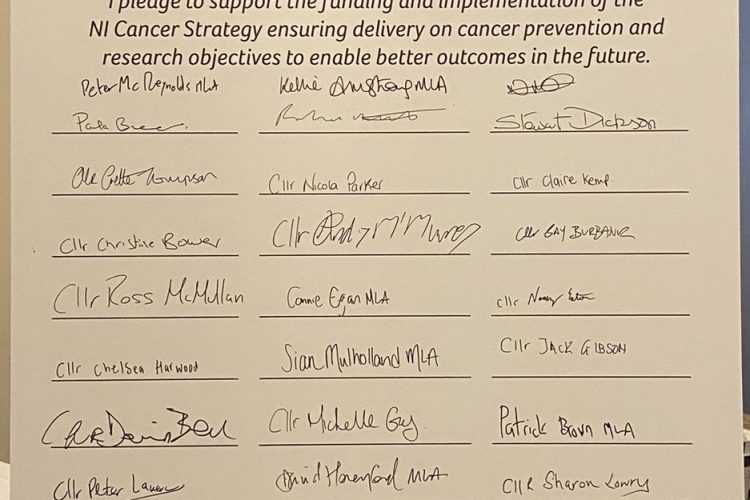 I pledge to support the funding and implementation of the
NI Cancer Strategy ensuring delivery on cancer prevention and
research objectives to enable better outcomes in the future.
Peter McReynolds MLA Kellie Armstrong MLA
Paula Stewart Dickson
Cllr Nicola Parker Cllr Claire Kemp
Cllr Christine Bower Cllr Andy McMurray Cllr GAY BURBANK
Cllr Ross McMullan Connie Egan MLA Cllr
Cllr Chelsea Harwood Sian Mulholland MLA Cllr JACK GIBSON
Cllr Michelle Guy Patrick Brown MLA
Cllr Peter David Honeyford MLA CLLR Sharon Lowry